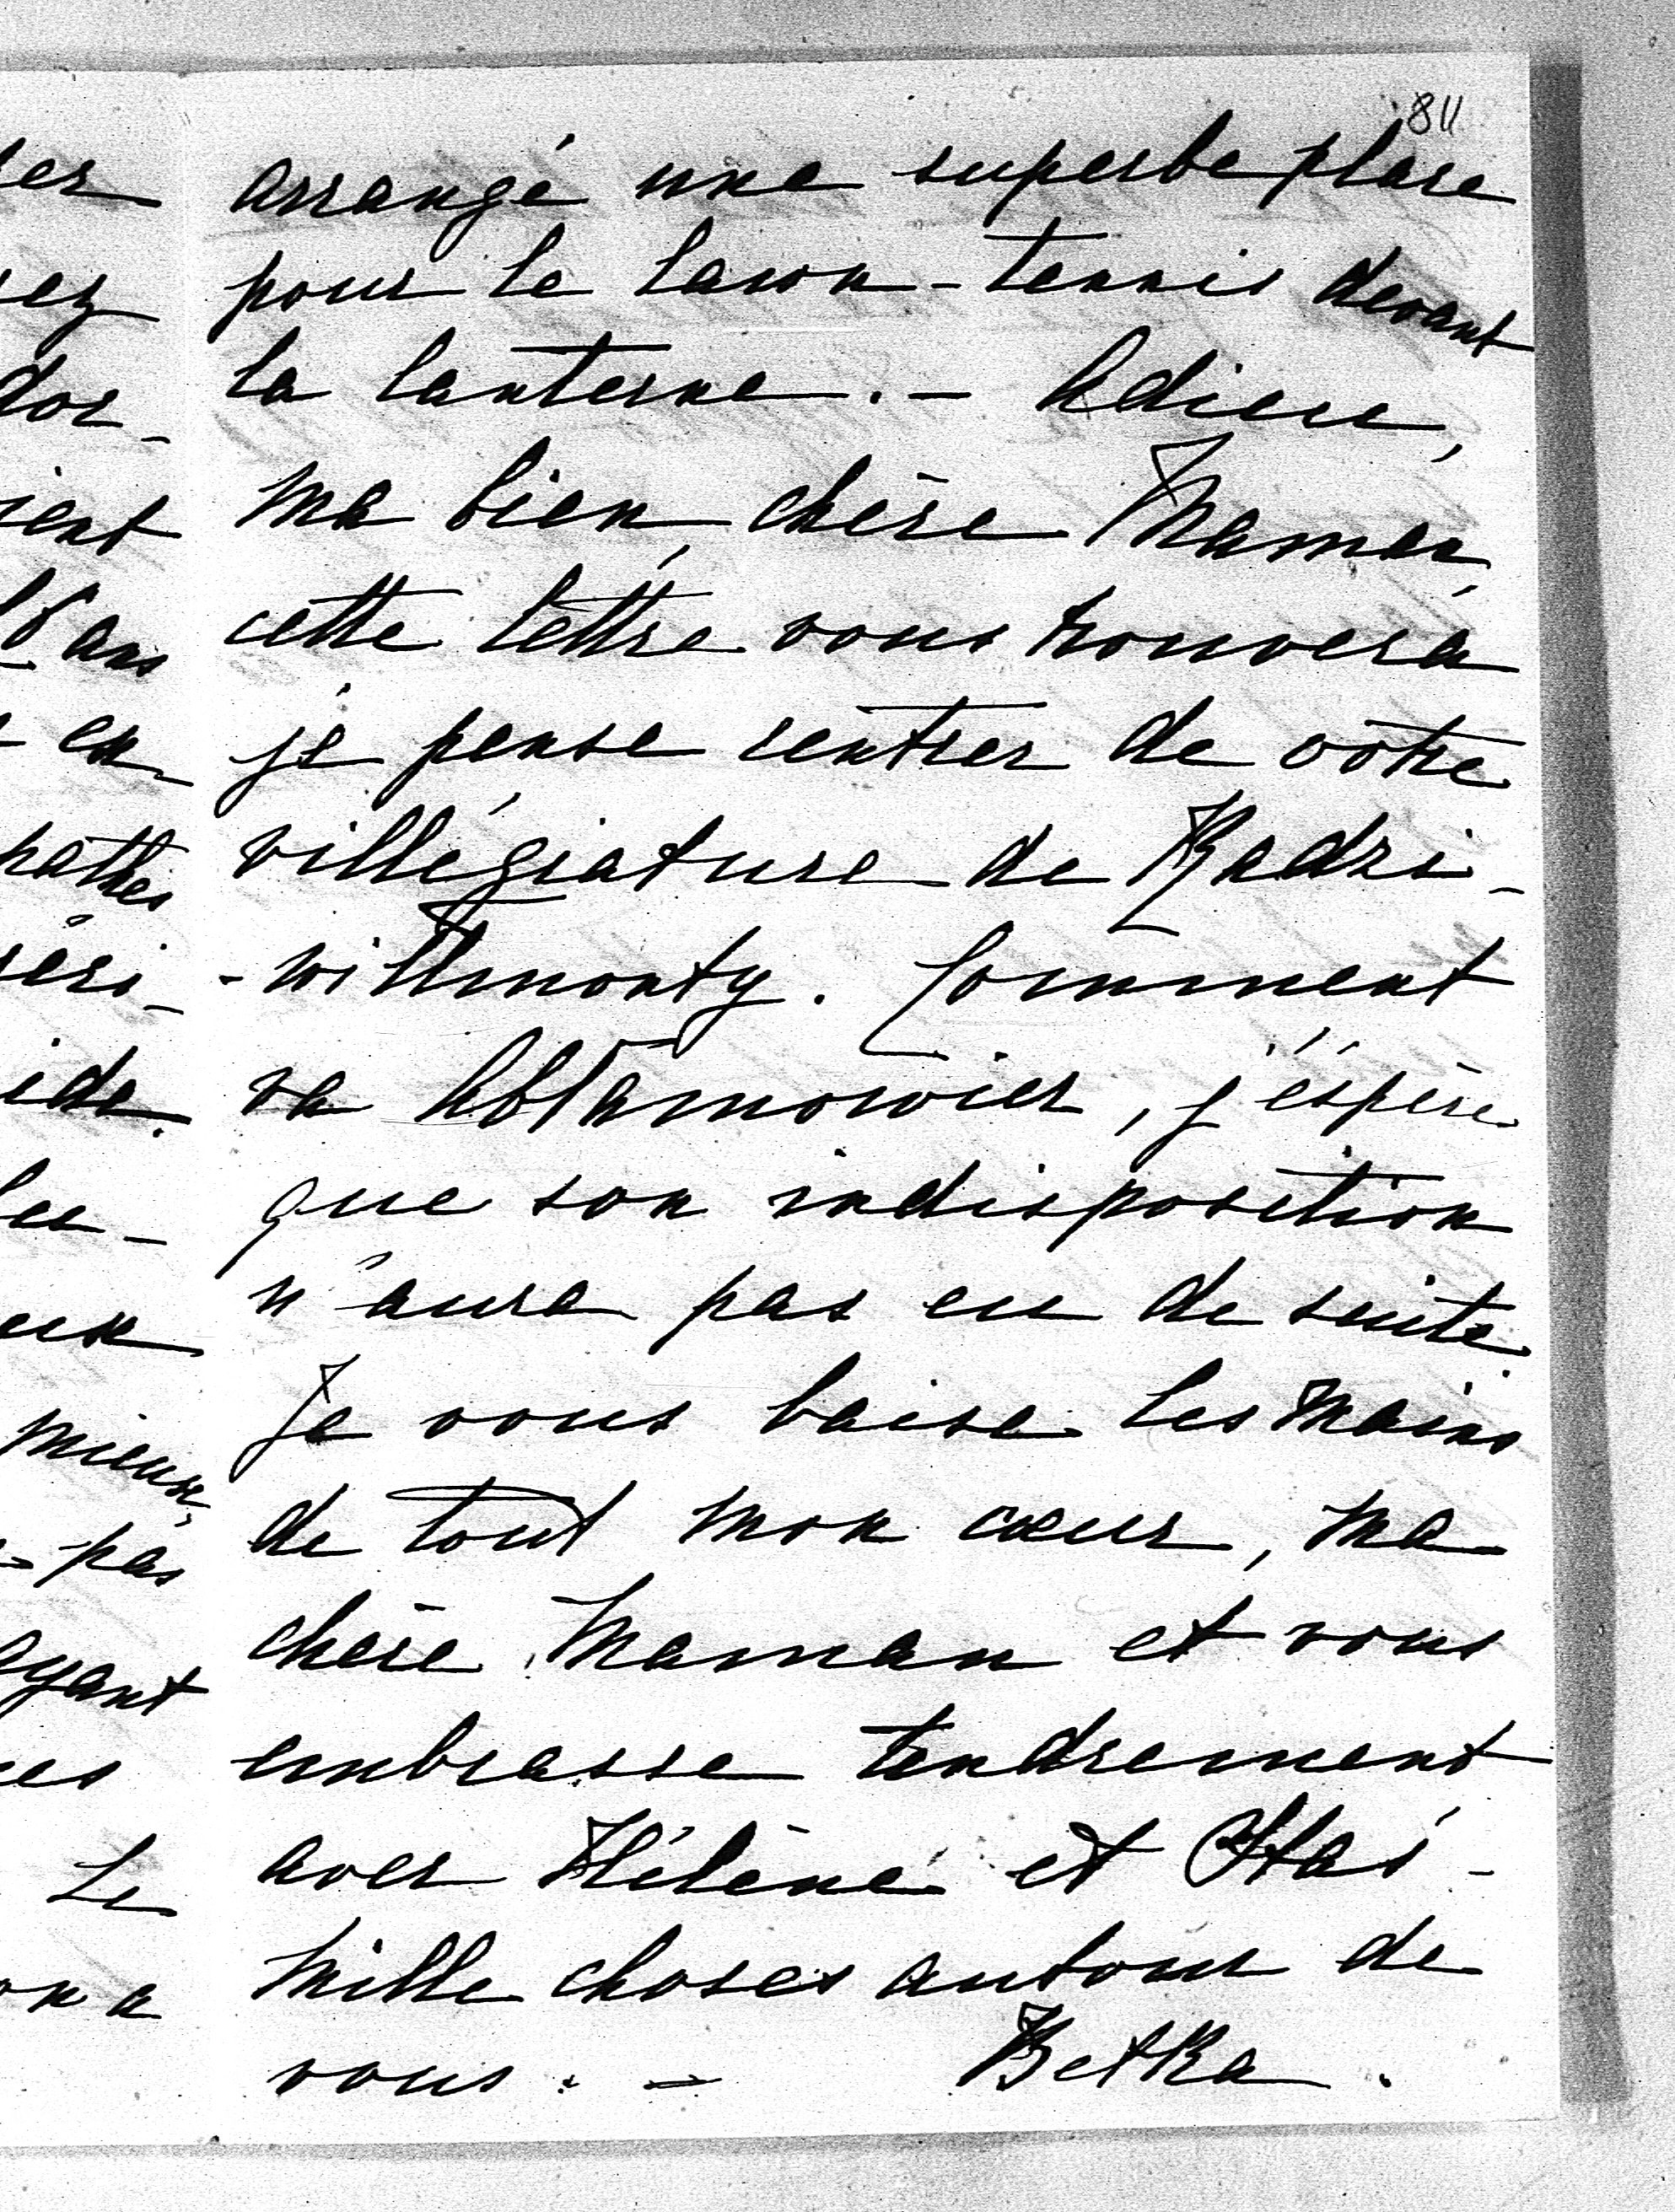 811
arrangé une superbe place
pour le lawn-tennis devant
la lanterne. - Adieu,
ma bien chère Maman,
cette lettre vous trouvera
je pense rentrer de votre
villégiature de Radzi-
-willmonty. Comment
va Abramowicz, j'éspère
que son indisposition
n'aura pas eu de suite.
Je vous baise les mains
de tout mon cœur, ma
chère Maman et vous
embrasse tendrement
avec Hélène et Stas -
Mille choses autour de
vous. - Betka.